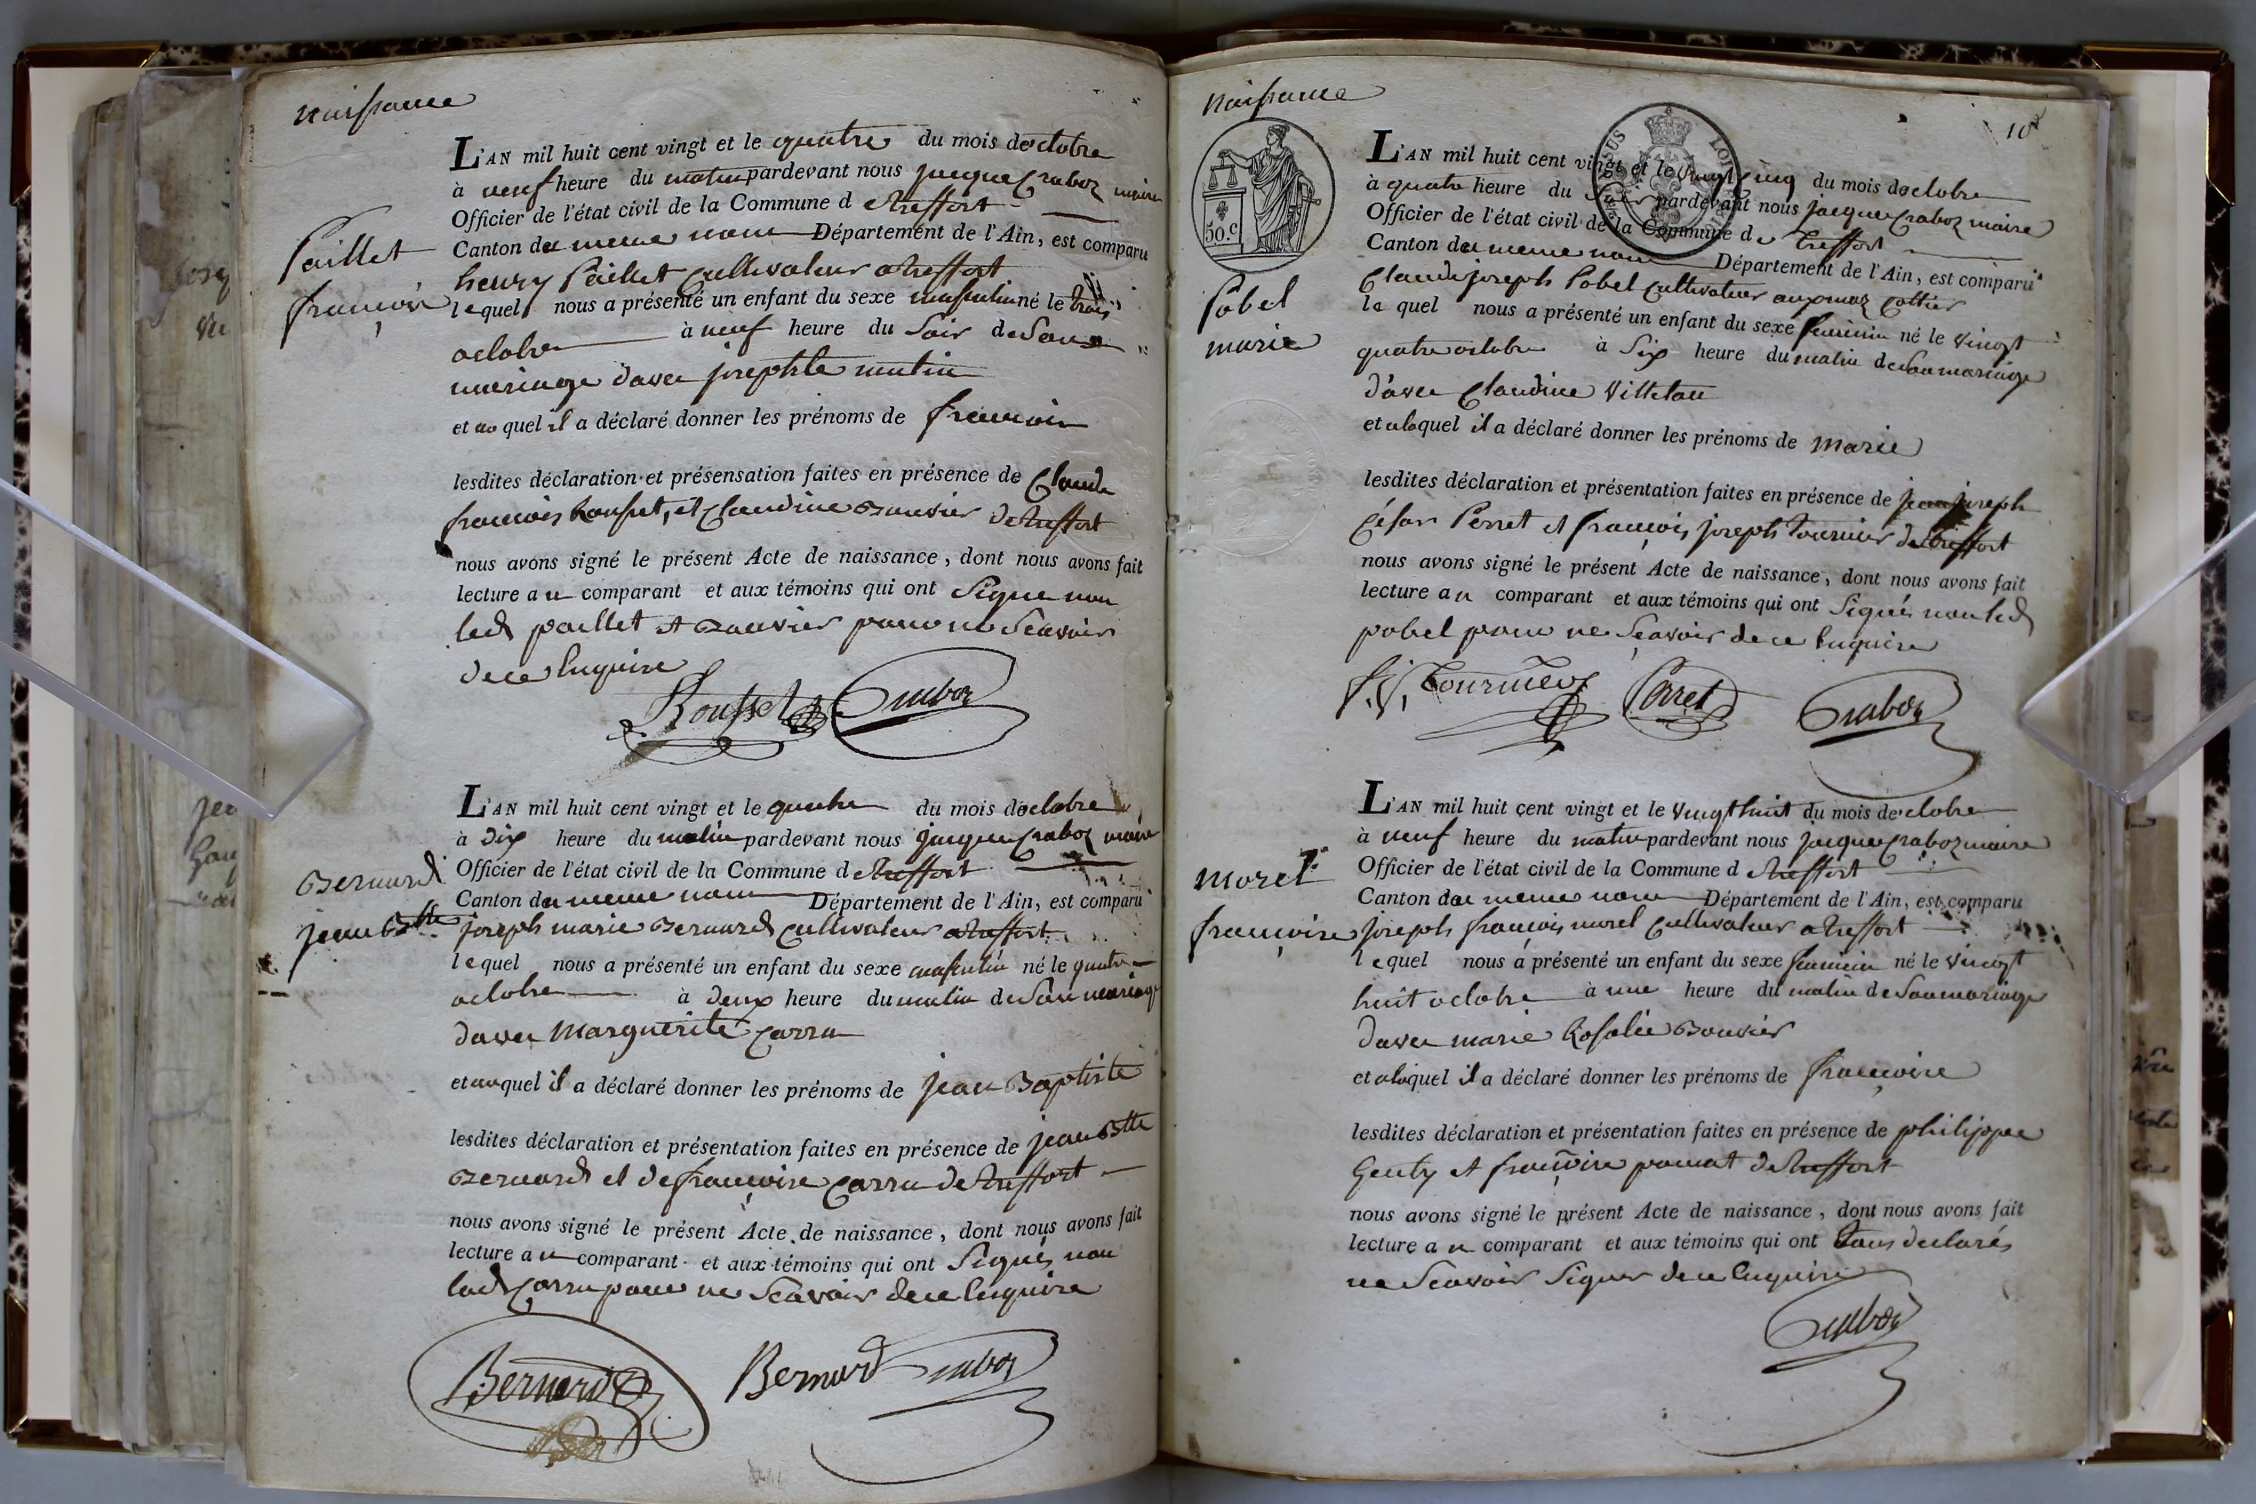 Naissance
L'AN mil huit cent vingt et le quatre du mois doctobre
à neuf heure du matin pardevant nous jacque Craboz maire
Officier de l'état civil de la Commune de treffort
Canton du meme nom Département de l'Ain, est comparu
henry Paillet Cultivateur a treffort
lequel nous a présenté un enfant du sexe masculin né le trois
octobre à neuf heure du Soir de Son
mariage davec josephte mutin
et au quel il a déclaré donner les prénoms de francois
lesdites déclaration et présensation faites en présence de Claude
francois Rousset, et Claudine Bouvier de treffort
nous avons signé le présent Acte de naissance, dont nous avons fait
lecture au comparant et aux témoins qui ont Signe non
led paillet et Bouvier pour ne Scavoir
de ce Enquire
Rousset Craboz
Paillet
françois
L'AN mil huit cent vingt et le quatre du mois doctobre
à dix heure du matin pardevant nous jacque Craboz maire
Officier de l'état civil de la Commune de treffort
Canton du meme nom Département de l'Ain, est comparu
joseph marie Bernard Cultivateur a treffort
lequel nous a présenté un enfant du sexe masculin né le quatre
octobre à deux heure du matin de Son mariage
davec Marguerite Carru
et auquel il a déclaré donner les prénoms de jean Baptiste
lesdites déclaration et présentation faites en présence de jean Btte
Bernard et de françoise Carru de treffort
nous avons signé le présent Acte de naissance, dont nous avons fait
lecture au comparant et aux témoins qui ont Signés non
lad Carru pour ne Scavoir de ce Enquire
Bernard Bernard Craboz
Bernard
jean Btte
Naissance
10
50.c
L'AN mil huit cent vingt et le vingt cinq du mois doctobre
à quatre heure du Soir pardevant nous jacque Craboz maire
Officier de l'état civil de la Commune de treffort
Canton du meme nom Département de l'Ain, est comparu
Claude joseph Pobel Cultivateur aux maz Cottier
le quel nous a présenté un enfant du sexe feminin né le vingt
quatre octobre à Six heure du matin de Son mariage
d'avec Claudine
et a laquel il a déclaré donner les prénoms de Marie
lesdites déclaration et présentation faites en présence de jean joseph
César Perret et françois joseph Tournier de treffort
nous avons signé le présent Acte de naissance, dont nous avons fait
lecture au comparant et aux témoins qui ont Signés non led
pobel pour ne Scavoir de ce Enquire
f. j. Tournier Perret Craboz
Pobel
marie
L'AN mil huit cent vingt et le vingt huit du mois doctobre
à neuf heure du matin pardevant nous jacque Craboz maire
Officier de l'état civil de la Commune de treffort
Canton du meme nom Département de l'Ain, est comparu
joseph françois morel Cultivateur a treffort
lequel nous a présenté un enfant du sexe feminin né le vingt
huit octobre à une heure du matin de Son mariage
davec marie Rosalie Bouvier
et a laquel il a déclaré donner les prénoms de françoise
lesdites déclaration et présentation faites en présence de philippe
Genty et françoise de treffort
nous avons signé le présent Acte de naissance, dont nous avons fait
lecture au comparant et aux témoins qui ont tous declarés
ne Scavoir Signer de ce Enquire
Craboz
morel
françoise